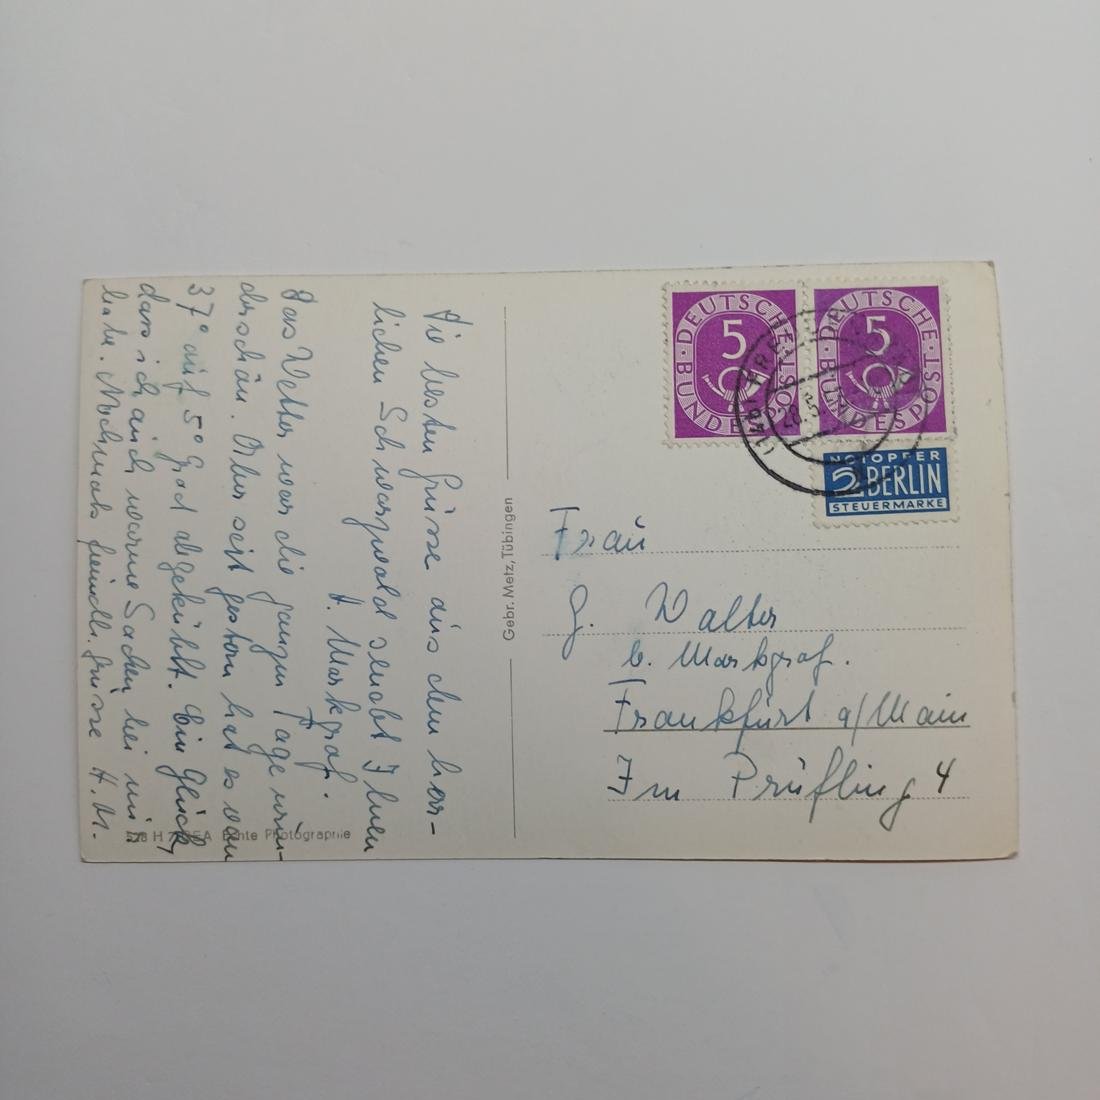 Die besten Grüsse aus dem herr-
lichen Schwarzwald sendet Ihnen
H. Markgraf.
Das Wetter war die ganzen Tage wun-
derschön. Aber seit gestern hat es von
37° auf 5° Grad abgekühlt. Ein Glück,
dass ich auch warme Sachen bei mir
habe. Nochmals freundl. Grüsse H. M.
Gebr. Metz, Tübingen
Echte Photographie
DEUTSCHE BUNDESPOST
5
DEUTSCHE BUNDESPOST
5
28.5.
NOTOPFER
2 BERLIN
STEUERMARKE
Frau
G. Walter
b. Markgraf.
Frankfurt a/Main
Im Prüfling 4